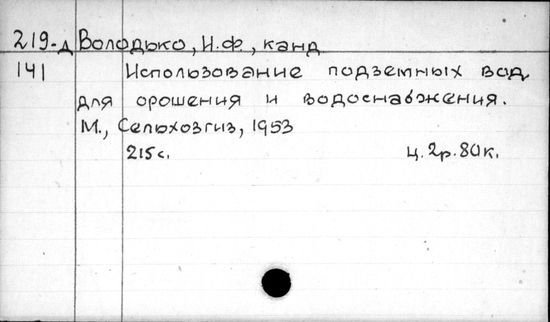 219-д Володько, И.Ф., канд
141 Использование подземных вод
для орошения и водоснабжения.
М., Сельхозгиз, 1953
215с. ц. 2р. 80к.